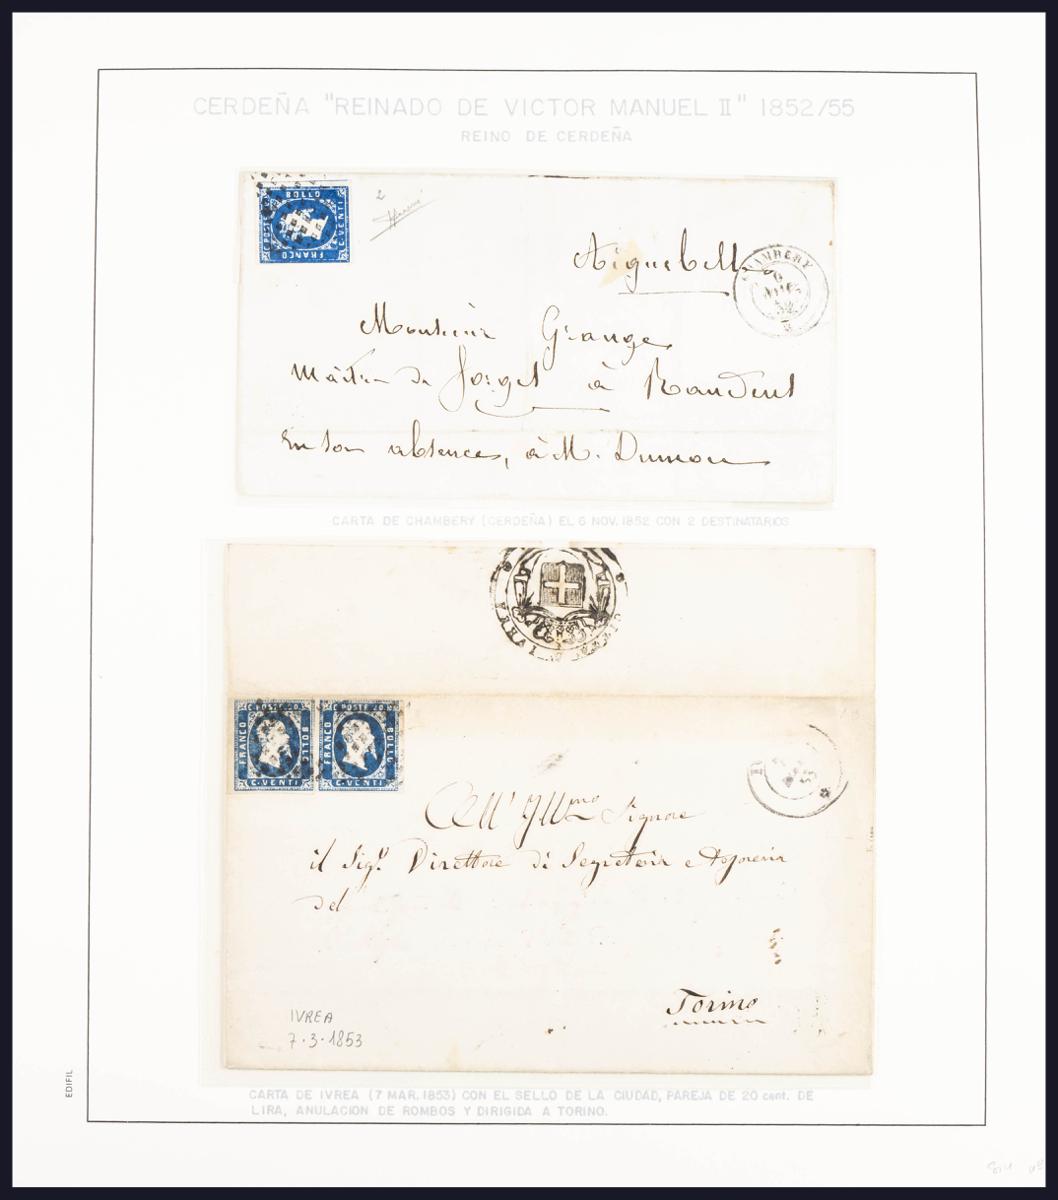 CERDEÑA "REINADO DE VICTOR MANUEL II" 1852/55
REINO DE CERDEÑA
C. POSTE
BOLLO
C. VENTI
FRANCO
2
Aiguebelle
CHAMBERY
6
52
Monsieur Grange
Maître de Forges à Randens
En son absence, à M. Dumou
CARTA DE CHAMBERY (CERDEÑA) EL 6 NOV. 1852 CON 2 DESTINATARIOS
C. POSTE 20.
FRANCO
BOLLO
C. VENTI
C. POSTE 20.
FRANCO
BOLLO
C. VENTI
7
53
All' Illmo Signore
il Sigr. Direttore di Segreteria e
del
Torino
IVREA
7-3-1853
CARTA DE IVREA (7 MAR. 1853) CON EL SELLO DE LA CIUDAD, PAREJA DE 20 cent. DE
LIRA, ANULACION DE ROMBOS Y DIRIGIDA A TORINO.
EDIFIL